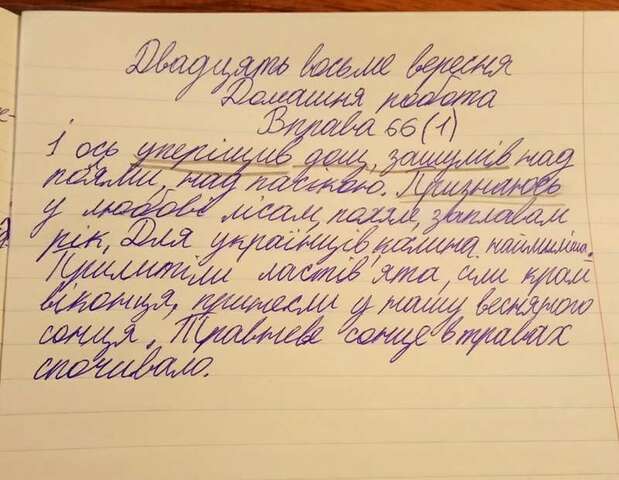 Двадцять восьме вересня
Домашня робота
Вправа 66(1)
І ось уперіщив дощ, зашумів над
полями, над пасікою. Признаюсь
у любові лісам, полям, заплавам
рік. Для українців калина наймиліша.
Прилитіли ластів'ята, сіли крам
віконця, принесли у нашу весняного
сонця. Травневе сонце в травах
спочивало.